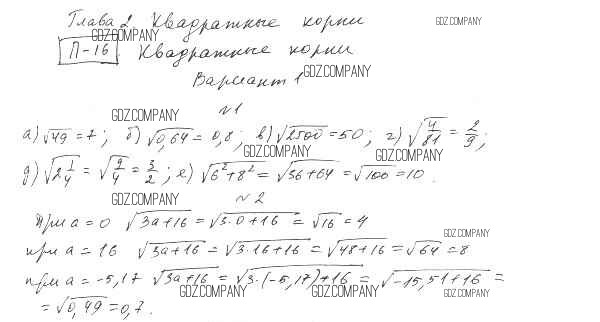 Глава 2. Квадратные корни GDZ.COMPANY
GDZ.COMPANY
П-16 Квадратные корни
Вариант 1 GDZ.COMPANY
GDZ.COMPANY №1
а) √49 = 7; б) √0,64 = 0,8; в) √2500 = 50; г) √(4/81) = 2/9;
GDZ.COMPANY GDZ.COMPANY
д) √(2 1/4) = √(9/4) = 3/2; е) √(6² + 8²) = √(36+64) = √100 = 10.
GDZ.COMPANY №2
При а = 0 √(3а+16) = √(3·0+16) = √16 = 4
GDZ.COMPANY
при а = 16 √(3а+16) = √(3·16+16) = √(48+16) = √64 = 8
GDZ.COMPANY
при а = -5,17 √(3а+16) = √(3·(-5,17)+16) = √(-15,51+16) =
GDZ.COMPANY GDZ.COMPANY GDZ.COMPANY
= √0,49 = 0,7.